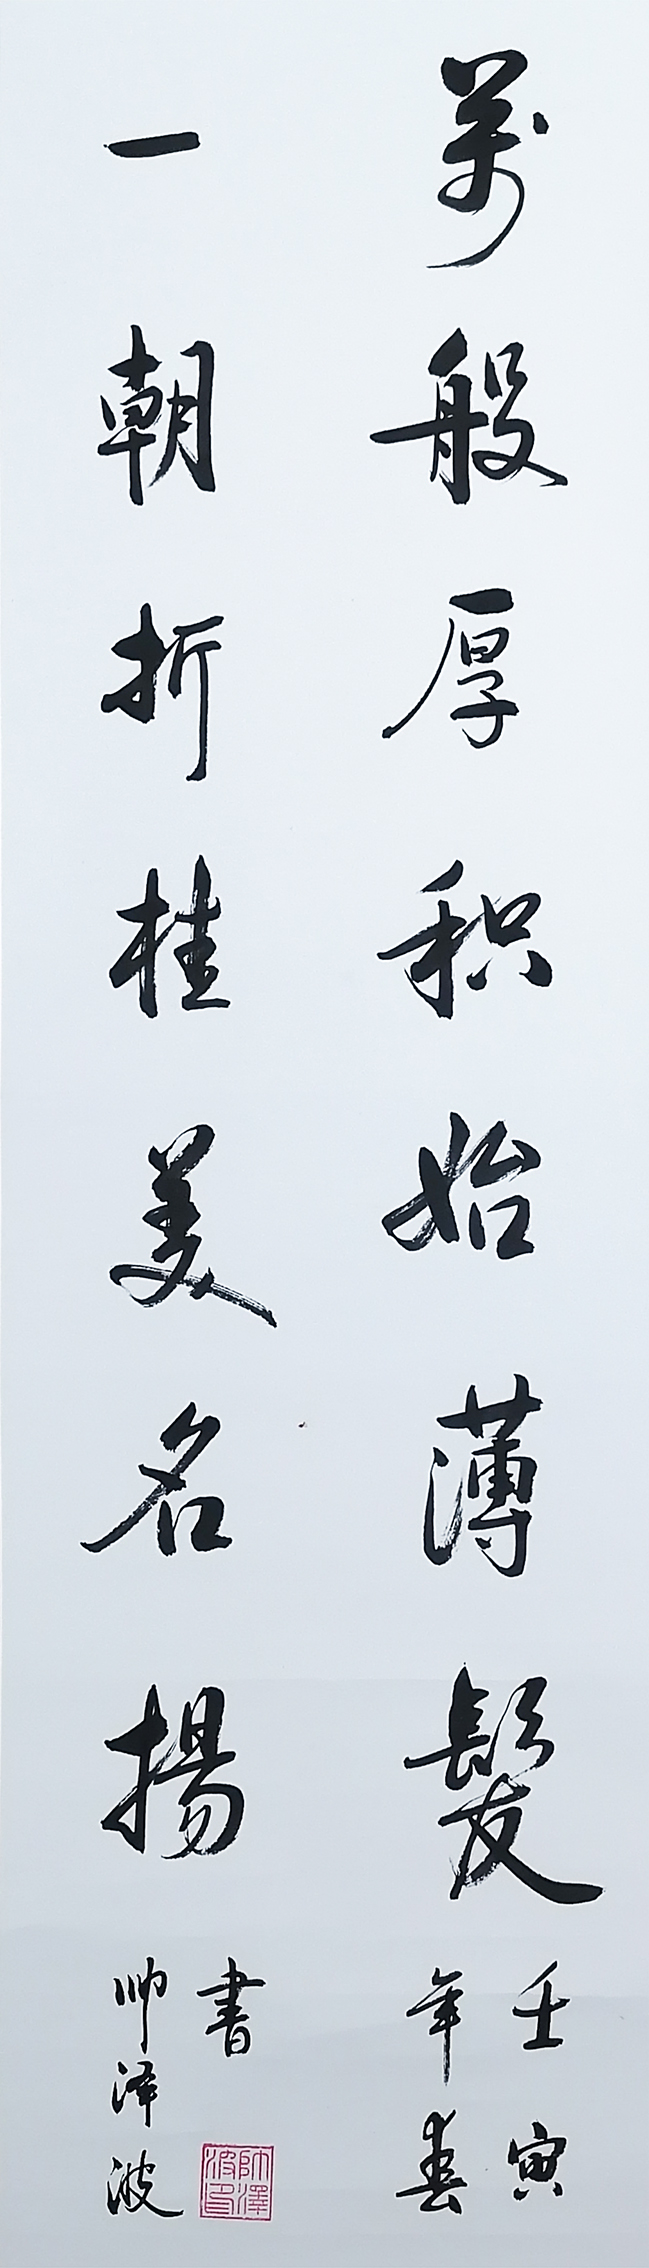 萬般厚积始薄髮
壬寅
年春
一朝折桂美名揚
書
帅泽波
帅澤波印